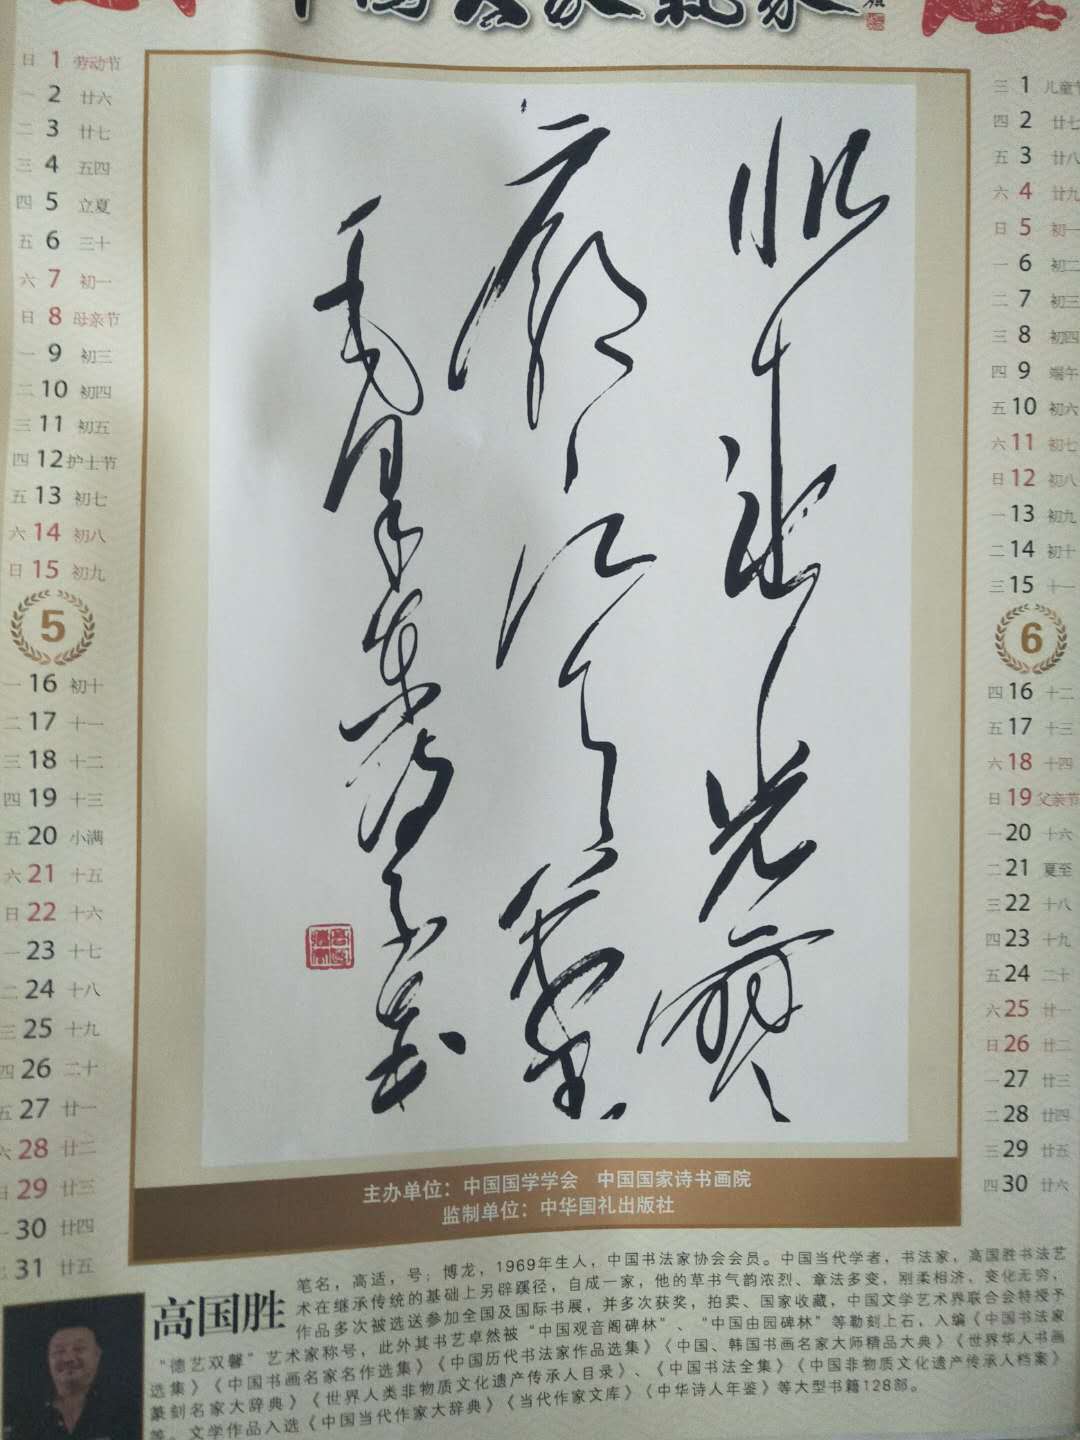 日 1 劳动节
一 2 廿六
二 3 廿七
三 4 五四
四 5 立夏
五 6 三十
六 7 初一
日 8 母亲节
一 9 初三
二 10 初四
三 11 初五
四 12 护士节
五 13 初七
六 14 初八
日 15 初九
5
一 16 初十
二 17 十一
三 18 十二
四 19 十三
五 20 小满
六 21 十五
日 22 十六
一 23 十七
二 24 十八
三 25 十九
四 26 二十
五 27 廿一
六 28 廿二
日 29 廿三
一 30 廿四
31 廿五
三 1 儿童节
四 2 廿七
五 3 廿八
六 4 廿九
日 5 初一
一 6 初二
二 7 初三
三 8 初四
四 9 端午
五 10 初六
六 11 初七
日 12 初八
一 13 初九
二 14 初十
三 15 十一
6
四 16 十二
五 17 十三
六 18 十四
日 19 父亲节
一 20 十六
二 21 夏至
三 22 十八
四 23 十九
五 24 二十
六 25 廿一
日 26 廿二
一 27 廿三
二 28 廿四
三 29 廿五
四 30 廿六
主办单位：中国国学学会 中国国家诗书画院
监制单位：中华国礼出版社
高国胜
笔名，高适，号：博龙，1969年生人，中国书法家协会会员。中国当代学者，书法家，高国胜书法艺
术在继承传统的基础上另辟蹊径，自成一家，他的草书气韵浓烈、章法多变，刚柔相济、变化无穷，
作品多次被选送参加全国及国际书展，并多次获奖，拍卖、国家收藏，中国文学艺术界联合会特授予
“德艺双馨”艺术家称号，此外其书艺卓然被“中国观音阁碑林”、“中国由园碑林”等勒刻上石，入编《中国书法家
选集》《中国书画名家名作选集》《中国历代书法家作品选集》《中国、韩国书画名家大师精品大典》《世界华人书画
篆刻名家大辞典》《世界人类非物质文化遗产传承人目录》、《中国书法全集》《中国非物质文化遗产传承人档案》
等。文学作品入选《中国当代作家大辞典》《当代作家文库》《中华诗人年鉴》等大型书籍128部。